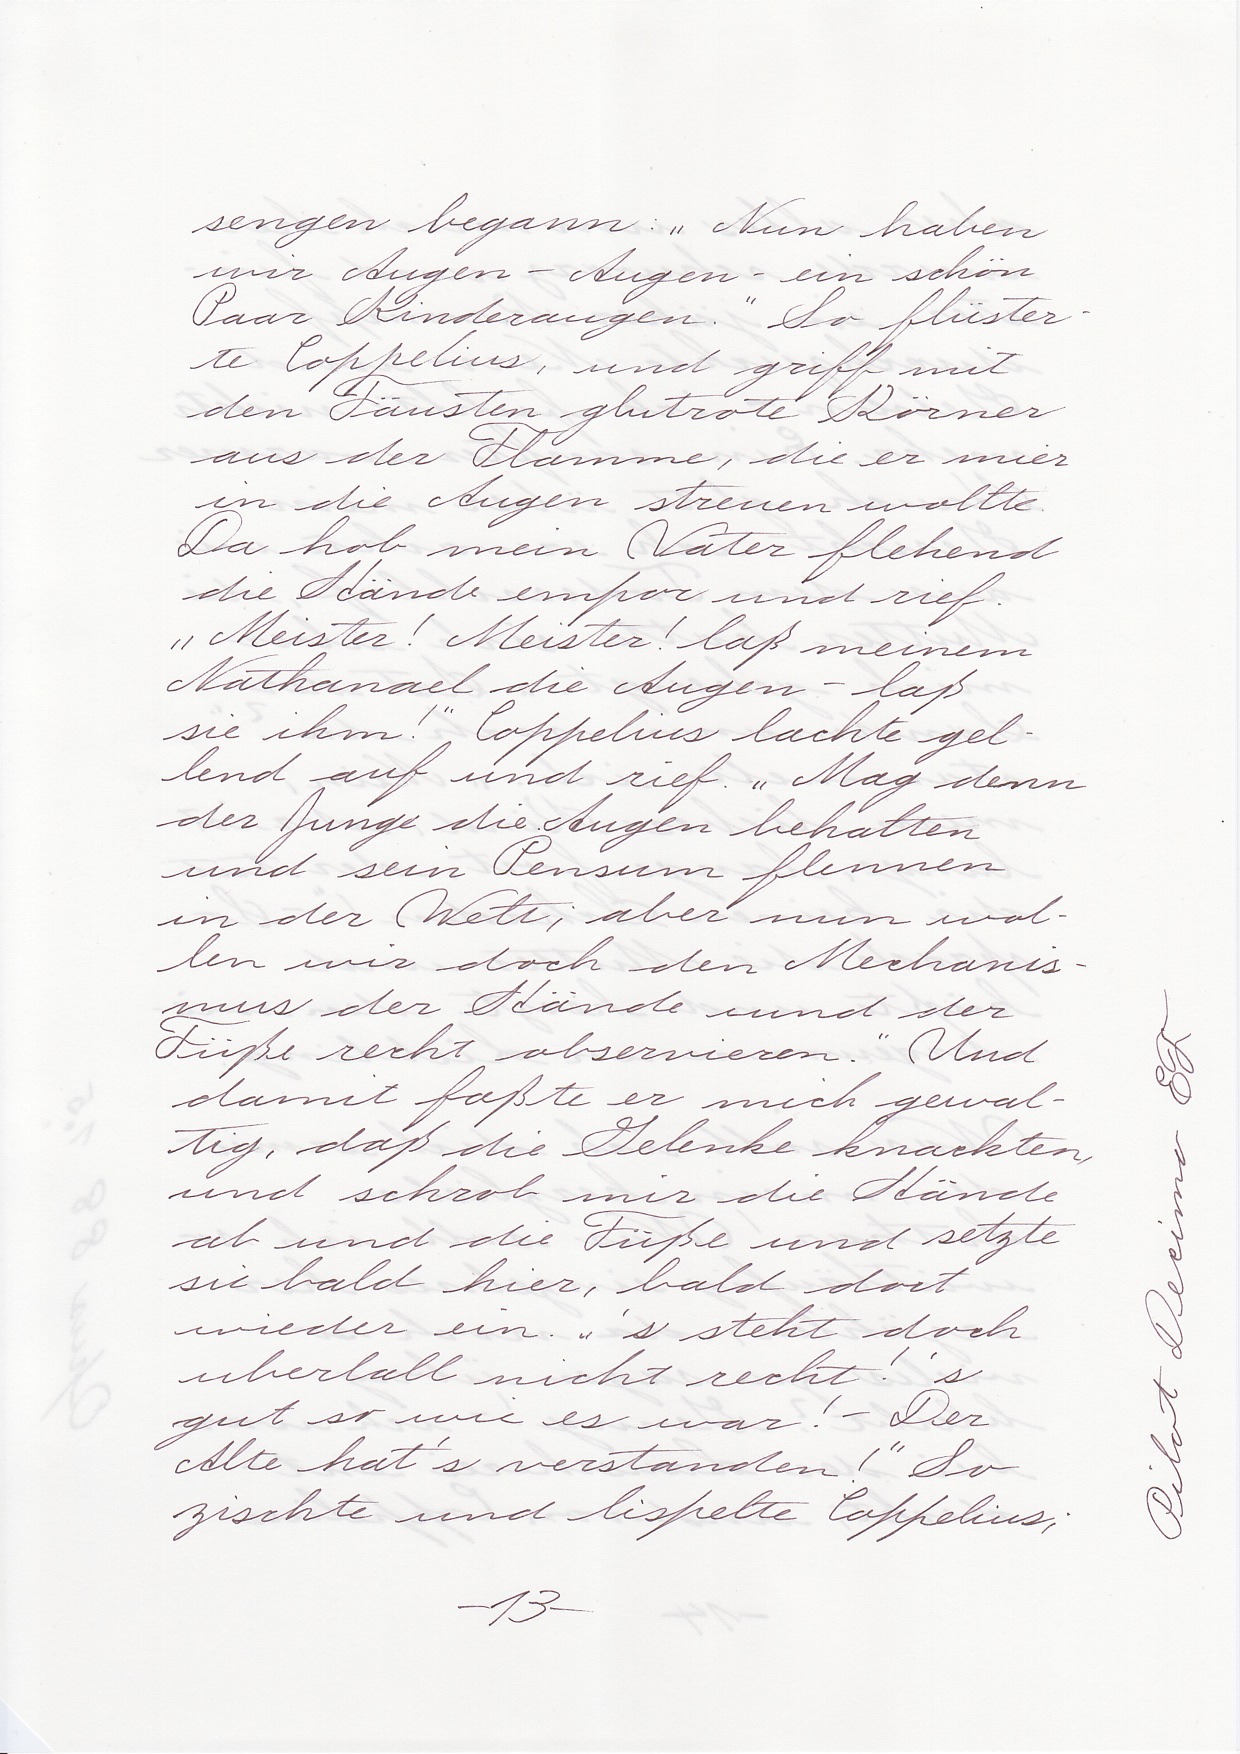 sengen begann: „Nun haben
wir Augen – Augen – ein schön
Paar Kinderaugen." So flüster-
te Coppelius, und griff mit
den Fäusten glutrote Körner
aus der Flamme, die er mier
in die Augen streuen wollte.
Da hob mein Vater flehend
die Hände empor und rief.
„Meister! Meister! laß meinem
Nathanael die Augen – laß
sie ihm!" Coppelius lachte gel-
lend auf und rief. „Mag denn
der Junge die Augen behalten
und sein Pensum flennen
in der Welt; aber nun wol-
len wir doch den Mechanis-
mus der Hände uund der
Füße recht observieren." Und
damit faßte er mich gewal-
tig, daß die Gelenke knackten,
und schrob mir die Hände
ab und die Füße und setzte
sie bald hier, bald dort
wieder ein. „'s steht doch
uberlall nicht recht! 's
gut so wie es war! – Der
Alte hat's verstanden!" So
zischte und lispelte Coppelius;
–13–
Pilot Decimo EF